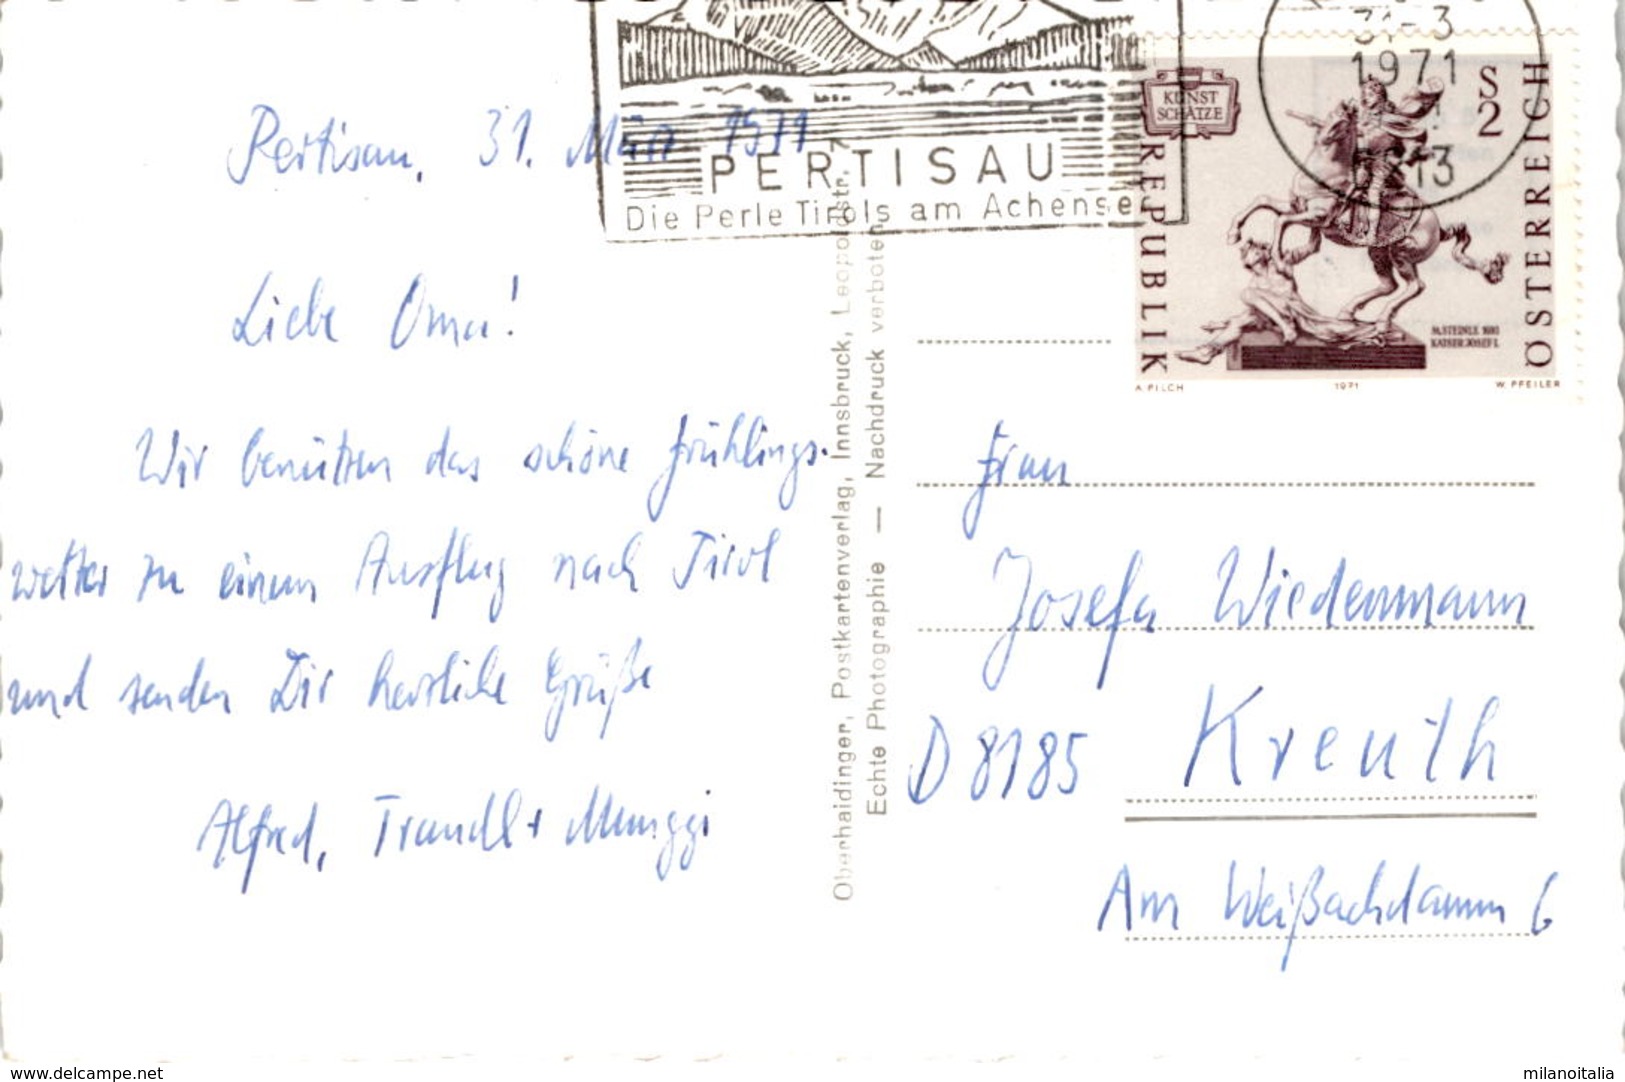 Pertisau, 31. März 1971
Liebe Oma!
Wir benützen das schöne Frühlings-
wetter zu einem Ausflug nach Tirol
und senden Dir herzliche Grüße
Alfred, Traudl + Munggi
PERTISAU
Die Perle Tirols am Achensee
31-3
1971
13
KUNST
SCHÄTZE
S
2
REPUBLIK
ÖSTERREICH
M. STEINLE 1693
KAISER JOSEF I.
A. PILCH 1971 W. PFEILER
Oberhaidinger, Postkartenverlag, Innsbruck, Leopoldstr.
Echte Photographie — Nachdruck verboten
Frau
Josefa Wiedenmann
D 8185 Kreuth
Am Weißachdamm 6
www.delcampe.net
milanoitalia